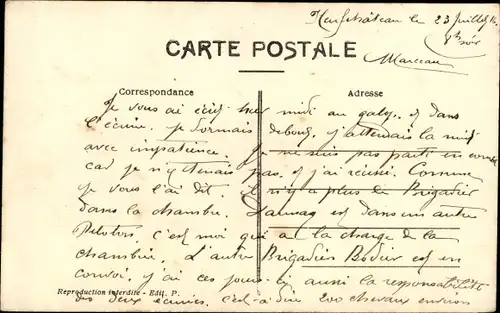 Neufchâteau le 23 Juillet
CARTE POSTALE
Marceau
Correspondance
Adresse
Je vous ai écrit hier midi au galop, et dans
l'écurie. Je dormais debout, j'attendais la nuit
avec impatience. Je ne suis pas parti en
car je n'y tenais pas, et j'ai réussi. Comme
je vous l'ai dit, il n'y a plus de Brigadier
dans la chambre. est dans un autre
Peloton, c'est moi qui a la charge de la
chambrée. L'autre Brigadier Bodier est en
convoi, j'ai ces jours-ci aussi la responsabilité
Reproduction interdite - Edit. P.
des deux écuries. c'est-à-dire 200 chevaux environ